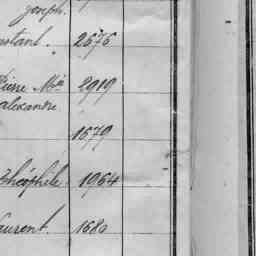 Joseph.
nstant. 2676
Pierre Mie 2919
alexandre
1679
Théophile. 1964
aurent. 1680